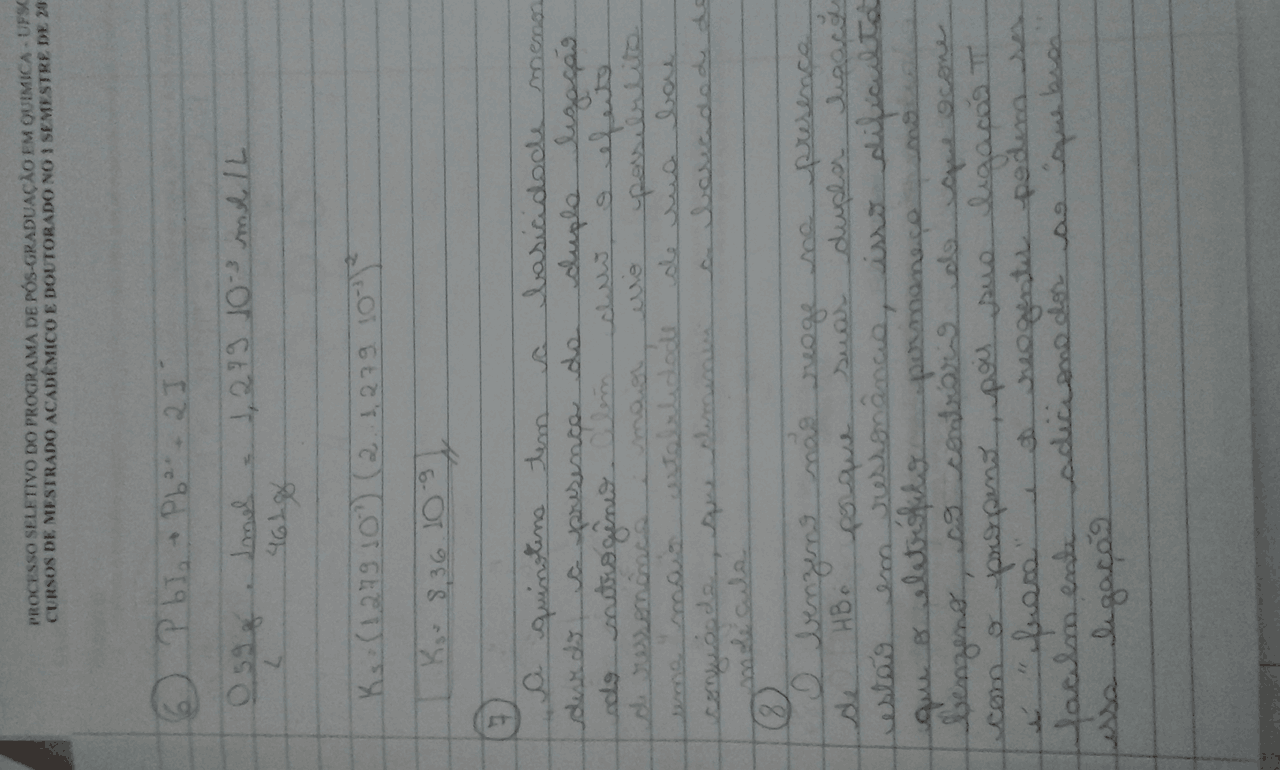 PROCESSO SELETIVO DO PROGRAMA DE PÓS-GRADUAÇÃO EM QUIMICA - UFSC
CURSOS DE MESTRADO ACADÊMICO E DOUTORADO NO 1 SEMESTRE DE 20
6 PbI₂ → Pb²⁺ + 2I⁻
0,59 g . 1mol = 1,279 10⁻³ mol/L
L 461g
Ks = (1,279 10⁻³) (2 . 1,279 10⁻³)²
Ks = 8,36 10⁻⁹
7
A quinolina tem a basicidade menor
devido a presença da dupla ligação
do nitrogênio. Além disso, o efeito
de ressonância maior possibilita
uma mais estabilidade de sua base
conjugada, que diminui a basicidade da
molécula
8
O benzeno não reage na presença
de HBr porque suas duplas ligações
estão em ressonância, isso dificulta
que o eletrófilo permaneça no
benzeno, ao contrário do que ocorre
com o propeno, pois sua ligação π
é "fraca" e o reagente podem ser
facilmente adicionados ao quebrar
essa ligação